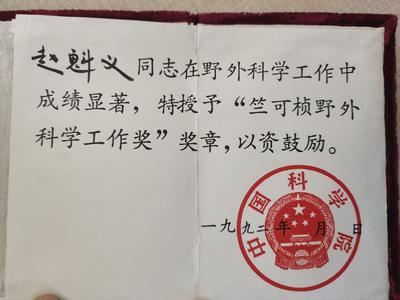 赵魁义同志在野外科学工作中
成绩显著，特授予“竺可桢野外
科学工作奖”奖章，以资鼓励。
中国科学院
一九九二年 月 日